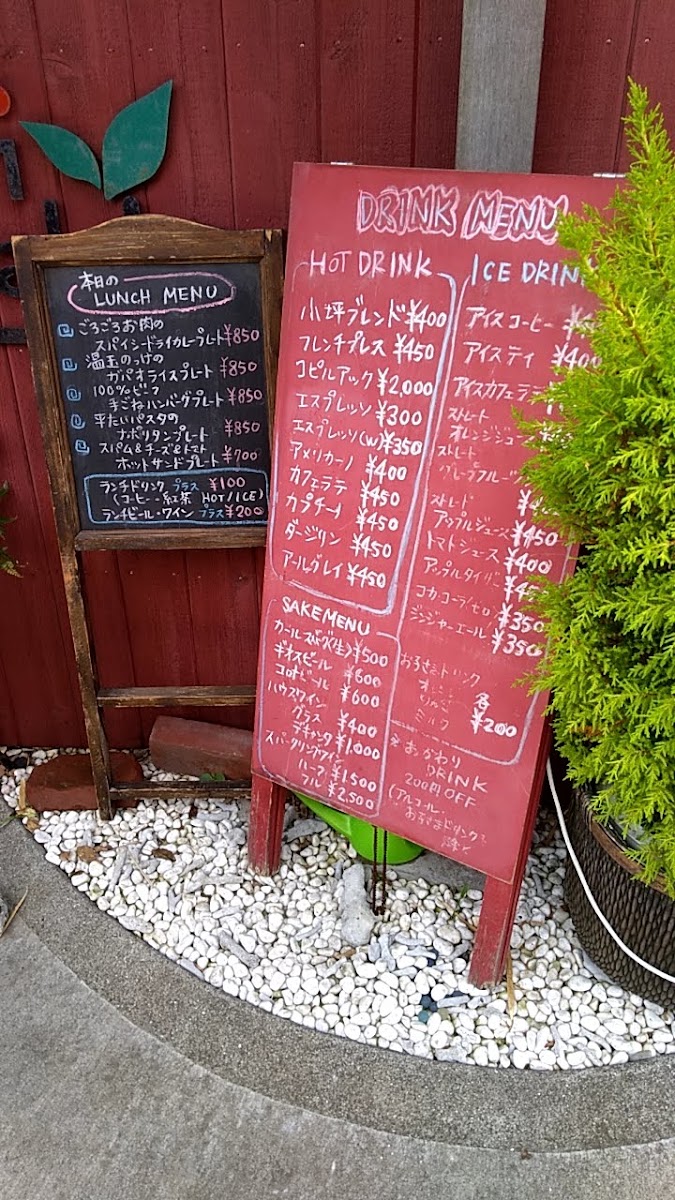 本日の
LUNCH MENU
ごろごろお肉の
スパイシードライカレープレート ¥850
温玉のっけの
ガパオライスプレート ¥850
100%ビーフ
手ごねハンバーグプレート ¥850
平たいパスタの
ナポリタンプレート ¥850
スパム&チーズ&トマト
ホットサンドプレート ¥700
ランチドリンク プラス ¥100
(コーヒー・紅茶 HOT/ICE)
ランチビール・ワイン プラス ¥200
DRINK MENU
HOT DRINK
小坪ブレンド ¥400
フレンチプレス ¥450
コピルアック ¥2,000
エスプレッソ ¥300
エスプレッソ(W) ¥350
アメリカーノ ¥400
カフェラテ ¥450
カプチーノ ¥450
ダージリン ¥450
アールグレイ ¥450
SAKE MENU
カールスバーグ(生) ¥500
ギネスビール ¥600
コロナビール ¥600
ハウスワイン
グラス ¥400
デキャンタ ¥1,000
スパークリングワイン
ハーフ ¥1,500
フル ¥2,500
ICE DRIN
アイスコーヒー
アイスティ ¥400
アイスカフェラテ
ストレート
オレンジジュース
ストレート
グレープフルーツ
ストレート
アップルジュース ¥450
トマトジュース ¥400
アップルタイザー
コカ・コーラ/ゼロ ¥350
ジンジャーエール ¥350
お子さまドリンク
オレンジ
りんご
ミルク
各 ¥200
※おかわり
DRINK
200円OFF
(アルコール・
お子さまドリンクも
除く